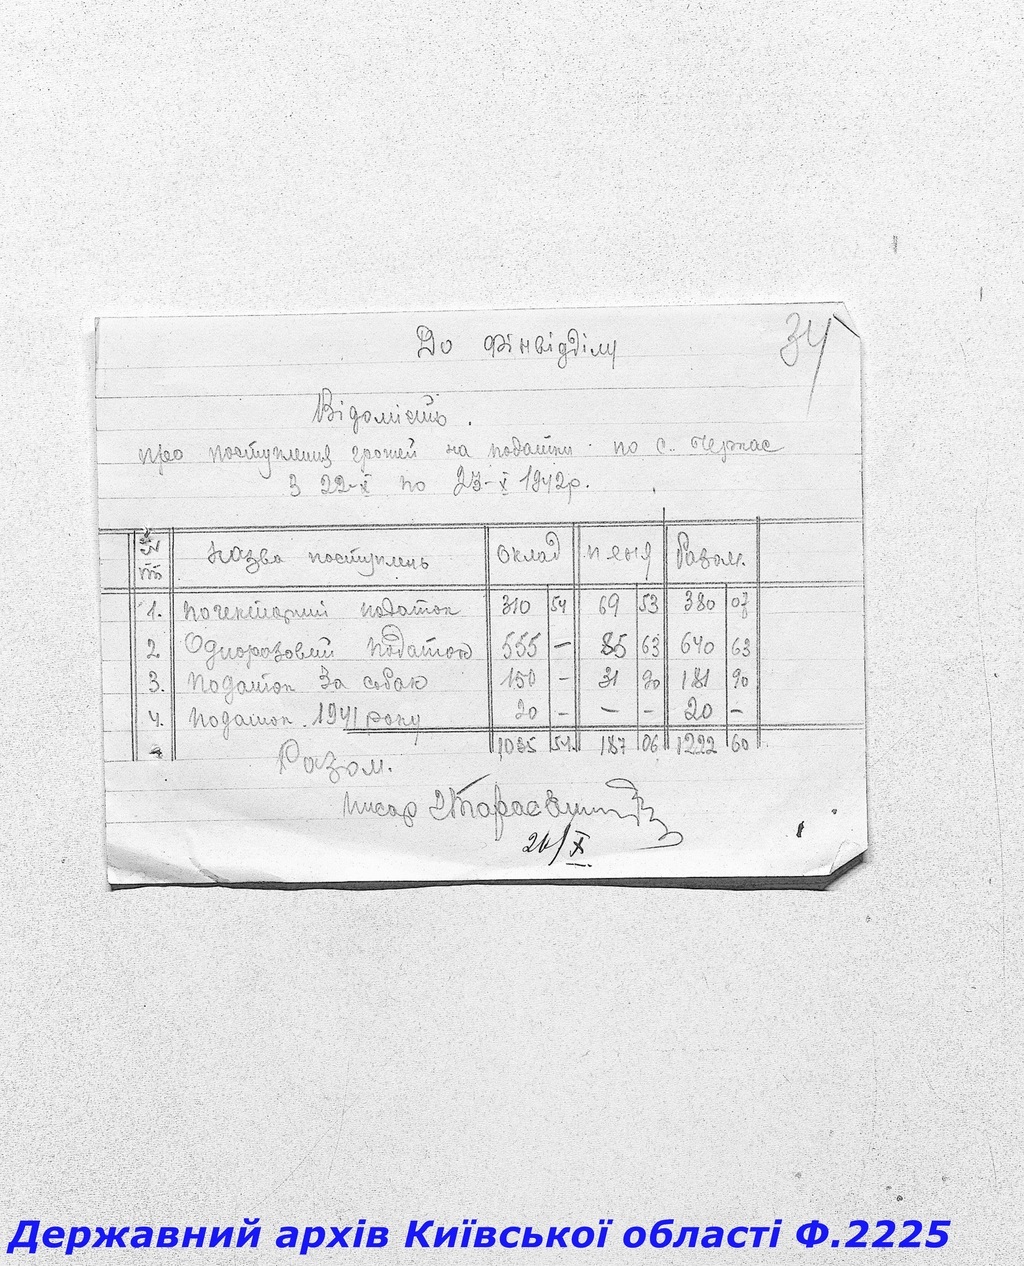 34
До Фінвідділу
Відомість.
про поступления грошей на податки по с. Черкас
З 22-X по 23-X 1942р.
№ пп Назва поступлень Оклад Пеня Разом.
1. Погектарний податок 310 54 69 53 380 07
2 Одноразовий податок 555 — 85 63 640 63
3. Податок За собак 150 - 31 90 181 90
4. Податок 1941 року 20 - — - 20 —
Разом. 1035 54 187 06 1222 60
Писар
/X
Державний архів Київської області Ф.2225